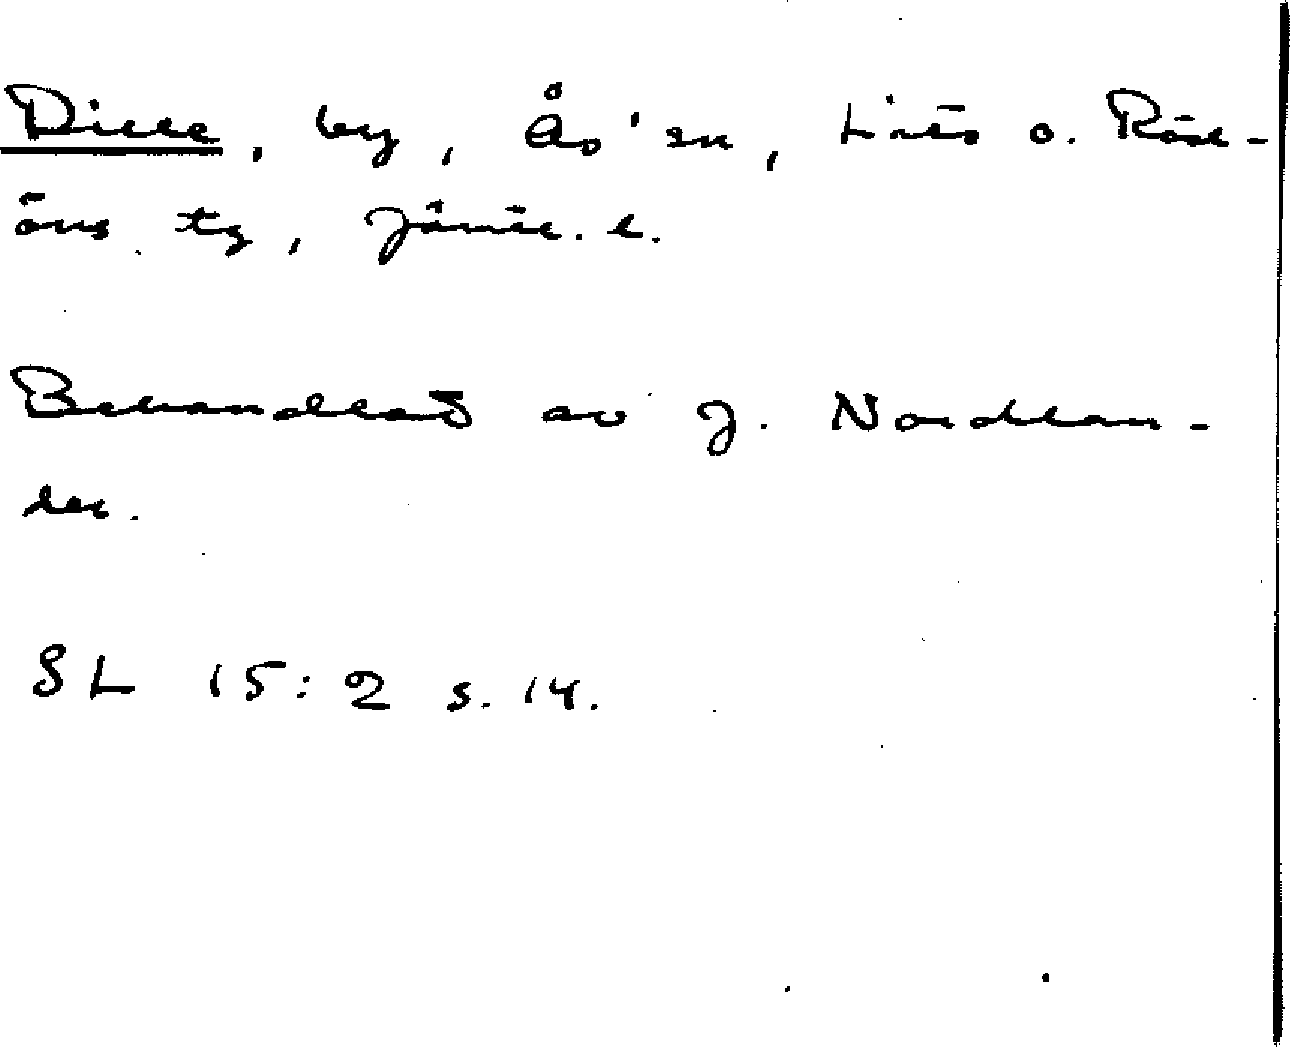 Dille, by, Ås' sn, Lits o. Röd-
öns tg, Jämtl. l.
Behandlat av J. Nordlan-
der.
SL 15:2 s. 14.